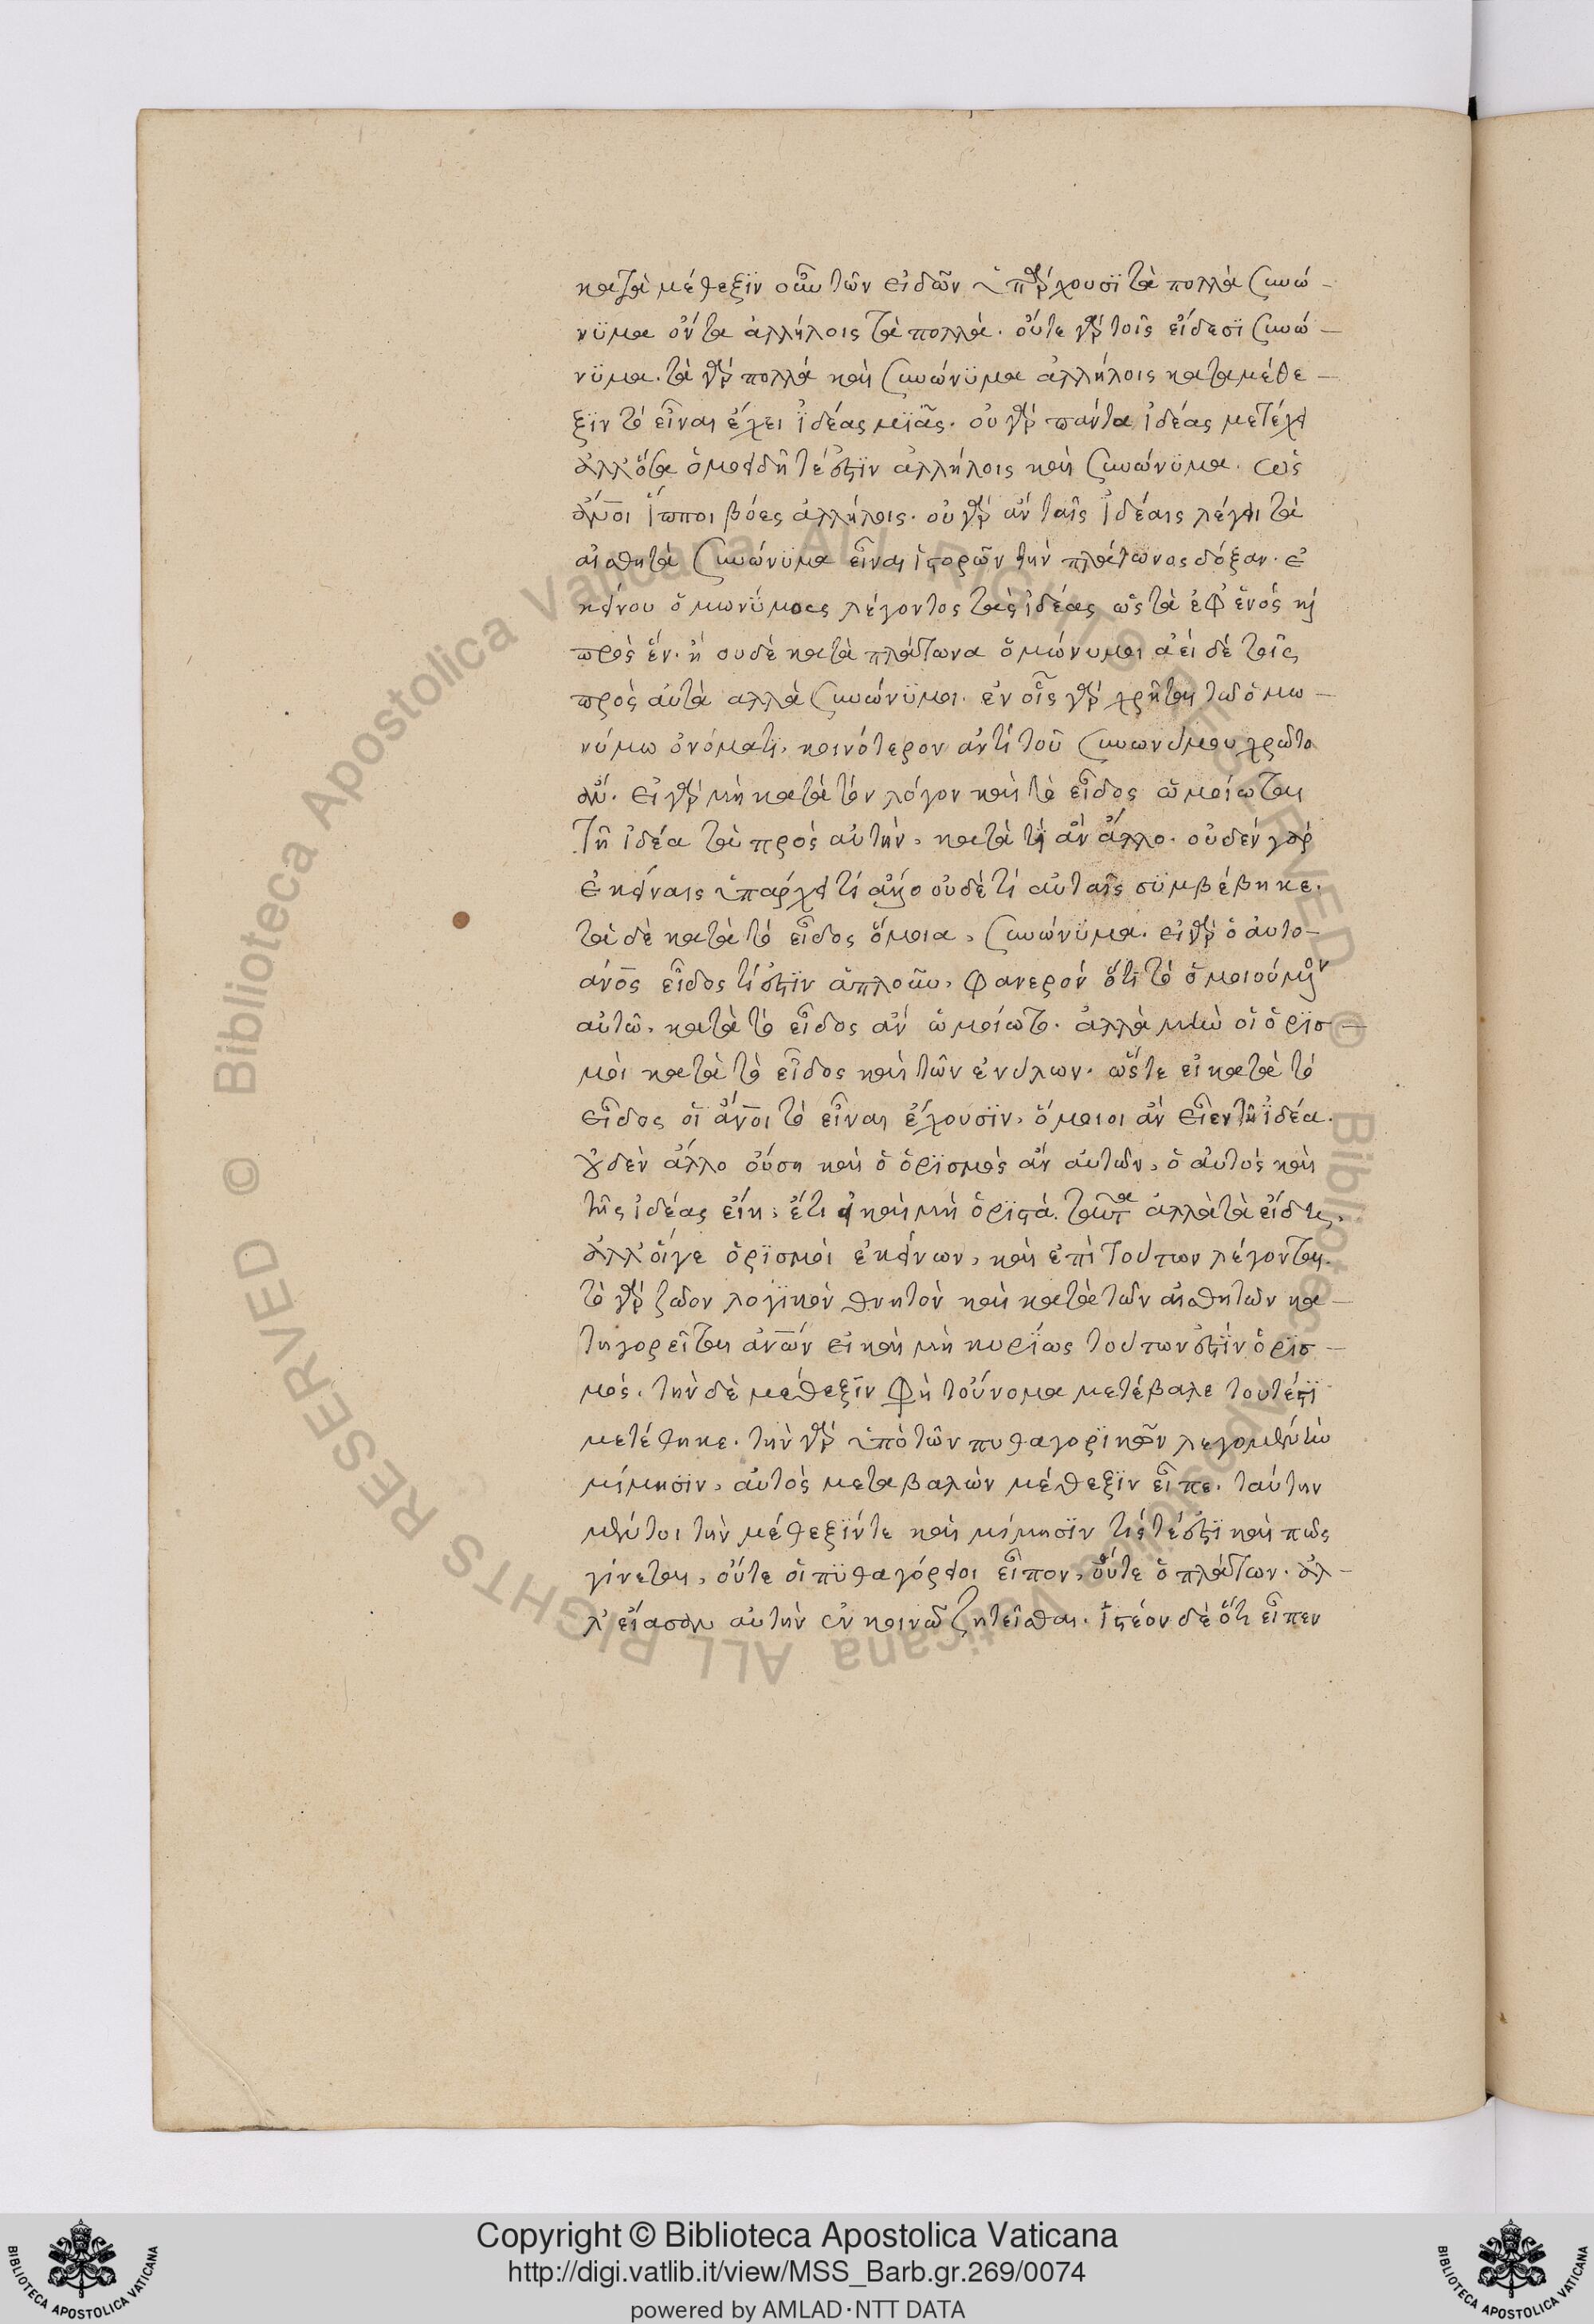 κατὰ μέθεξϊν οὖν τῶν εἰδῶν ὑπάρχουσϊ τὰ πολλὰ συνώ-
νϋμα ὄντα ἀλλήλοις τὰ πολλά. οὔτε γὰρ τοῖς εἴδεσϊ συνώ-
νϋμα. τὰ γὰρ πολλά καὶ συνώνϋμα ἀλλήλοις κατα μέθε-
ξϊν τὸ εἶναι ἔχει ἰδέας μϊᾶς. οὐ γὰρ πάντα ἰδέας μετέχει
ἀλλ' ὅσα ὁμοειδῆ τέ ἐστϊν ἀλλήλοις καὶ συνώνϋμα. ὡς
ἄνοι ἵπποι βόες ἀλλήλοις. οὐ γὰρ ἂν ταῖς ἰδέαις λέγει τὰ
αἰσθητὰ συνώνϋμα εἶναι ἱστορῶν τὴν πλάτωνος δόξαν. ἐ
κείνου ὁμωνύμους λέγοντος τὰς ἰδέας ὡς τὰ ἐφ' ἑνός καὶ
πρὸς ἕν. ἢ ουδὲ κατὰ πλάτωνα ὁμώνυμοι αἱ ἰδέαι τοῖς
πρὸς αὐτὰ αλλὰ συνώνϋμοι. ἐν οἷς γὰρ χρῆται τῶ ὁμω-
νύμω ὀνόματι, κοινότερον ἀντὶ τοῦ συνωνύμου χρῶτο
ἄν. εἰ γὰρ μὴ κατὰ τὸν λόγον καὶ τὸ εἶδος ὡμοίωται
τῆ ἰδέα τὰ πρὸς αὐτὴν, κατὰ τί ἂν ἄλλο. οὐδεν γὰρ
ἐκείναις ὑπάρχει τί ἄλλο οὐδέ τί αὐταῖς συμβέβηκε.
τὰ δὲ κατὰ τὸ εἶδος ὅμοια, συνώνϋμα. εἰ γὰρ ὁ ἀυτο-
άνος εἶδος τί ἐστϊν ἁπλοῦν, φανερόν ὅτι τὸ ὁμοιούμενον
αὐτῶ, κατὰ τὸ εἶδος ἂν ὡμοίωτο. ἀλλὰ μὴν οἱ ὁρϊσ-
μοὶ κατὰ τὸ εἶδος καὶ τῶν ἐνύλων. ὥστε εἰ κατὰ τὸ
εἶδος οἱ ἄνοι τὸ εἶναι ἔχουσϊν, ὅμοιοι ἂν εἶεν τῆ ἰδέα.
οὐδὲν ἄλλο οὔση καὶ ὁ ὁρϊσμὸς ἂν αὐτῶν, ὁ αὐτὸς καὶ
τῆς ἰδέας εἴη. ἔτι εἰ καὶ μὴ ὁρϊστὰ ταῦτα ἀλλὰ τὰ εἴδη,
ἀλλ' οἵγε ὁρϊσμοὶ ἐκείνων, καὶ ἐπὶ τούτων λέγονται.
τὸ γὰρ ζῶον λογϊκὸν θνητὸν καὶ κατὰ τῶν αἰσθητῶν κα-
τηγορεῖται ἀνων εἰ καὶ μὴ κυρϊως τούτων ἐστὶν ὁρϊσ-
μός. τὴν δὲ μέθεξϊν φησὶ τοὔνομα μετέβαλε τουτέστϊ
μετέθηκε. τὴν γὰρ ὑπὸ τῶν πυθαγορϊκῶν λεγομένην
μίμησϊν, αὐτὸς μεταβαλὼν μέθεξϊν εἶπε. ταύτην
μέντοι τὴν μέθεξϊν τε καὶ μίμησϊν τίς τέ ἐστϊ καὶ πῶς
γίνεται, οὔτε οἱ πϋθαγόρειοι εἶπον, οὔτε ὁ πλάτων. ἀλ-
λ' εἴασαν αὐτὴν ἐν κοινῶ ζητεῖσθαι. ἰστέον δὲ ὅτι εἶπεν
Copyright © Biblioteca Apostolica Vaticana
http://digi.vatlib.it/view/MSS_Barb.gr.269/0074
powered by AMLAD·NTT DATA
BIBLIOTECA APOSTOLICA VATICANA
BIBLIOTECA APOSTOLICA VATICANA
© Biblioteca Apostolica Vaticana ALL RIGHTS RESERVED
© Biblioteca Apostolica Vaticana ALL RIGHTS RESERVED